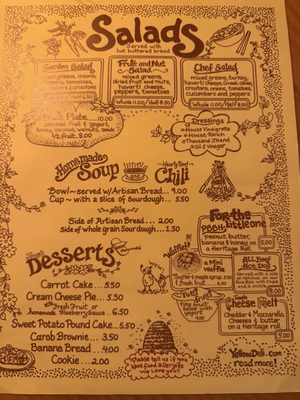 Salads
Served with
hot buttered bread
Garden Salad
mixed greens, onions,
tomatoes,
croutons
Fruit and Nut
Salad
mixed greens,
dried fruit and nuts,
haverti cheese,
Whole 11.00 / Half 8.50
Chef Salad
mixed greens, turkey,
haverti cheese, Greek olives,
croutons, onions, tomatoes,
cucumbers and peppers
Whole 11.00 / Half 8.50
Fruit Plate 10.00
fruit & yogurt,
honey, coconut, walnuts, seeds
fruit 8.00
Dressings
House Vinaigrette
House Ranch
Thousand Island
Oil & Vinegar
Homemade
Soup
Hearty Beef
Chili
Bowl~ served w/Artisan Bread... 9.00
Cup~ with a slice of Sourdough... 5.50
Side of Artisan Bread ... 2.00
Side of whole grain Sourdough ...1.50
Desserts
Carrot Cake ... 5.50
Cream Cheese Pie... 5.50
with Fresh Fruit or
Homemade Blueberry Sauce ... 6.50
Sweet Potato Pound Cake... 5.50
Carob Brownie... 3.50
Banana Bread ... 4.00
Cookie ... 2.00
For the
little one
peanut butter,
banana & honey on
a Heritage Roll
5.00
a Mini
Waffle
butter & maple syrup
fresh fruit
All Beef
Hot Dog
5.00
Fruit
Cheese Melt
Cheddar & Mozzarella
Cheeses & butter
on a Heritage roll
5.00
Please tell us if you
have food allergies
We love you!
YellowDeli.com
read more!